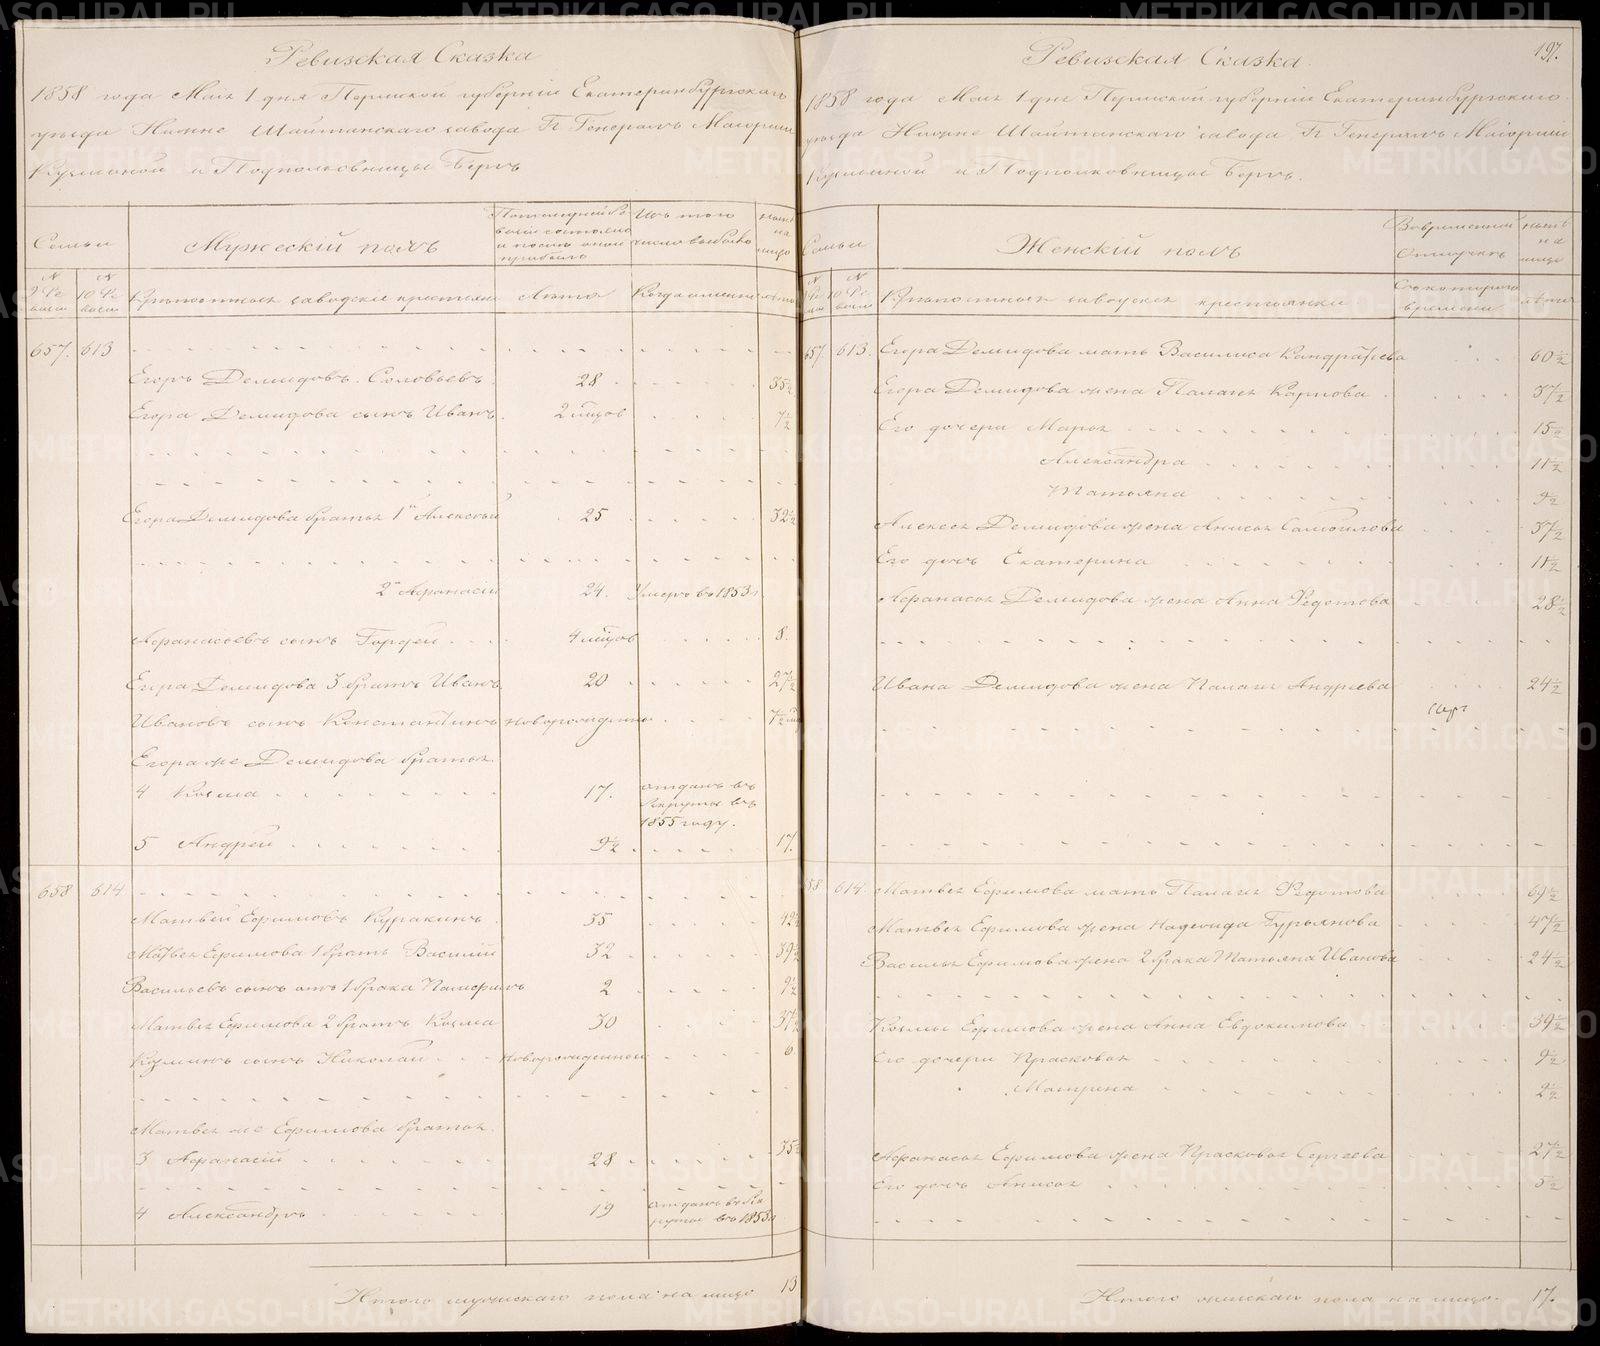 Ревизская Сказка
1858 года Маія 1 дня Пермской губерніи Екатеринбургскаго
уезда Нижне Шайтанскаго завода Гг Генералъ Маіорши
Кузминой и Подполковницы Бергъ
Семьи
Мужескій полъ
Изъ того числа выбыло
Крепостные заводские крестьяне
Лета
Когда именно
Лета
657. 613
Егоръ Демидовъ Соловьевъ 28 35½
Егора Демидова сынъ Иванъ 2 мцов 7½
Егора Демидова братья 1й Алексей 25 32½
2й Афанасій 24. Умеръ въ 1853 г
Афанасьевъ сынъ Гордей 4 мцов 8.
Егора Демидова 3 братъ Иванъ 20 27½
Ивановъ сынъ Константинъ новорожденъ
Егора же Демидова братья
4 Козма 17. отданъ въ
Рекруты въ
1855 году.
5 Андрей 9½ 17.
658 614
Матвей Ефимовъ Куракинъ 35 42½
Матвея Ефимова 1 братъ Василій 32 39½
Васильевъ сынъ отъ 1 брака Памфилъ 2 9½
Матвея Ефимова 2 братъ Козма 30 37½
Козминъ сынъ Николай новорожденной 6
Матвея же Ефимова братья
3 Афанасій 28 35½
4 Александръ 19 отданъ въ Рек
руты въ 1853 г
Итого мужскаго пола на лицо 13
197.
Ревизская Сказка
1858 года Маія 1 дня Пермской губерніи Екатеринбургскаго
уезда Нижне Шайтанскаго завода Гг Генералъ Маіорши
Кузминой и Подполковницы Бергъ.
Семьи
Женскій полъ
Во временной
Отлучке
Крепостныя заводския крестьянки
Съ котораго
времени
Лета
657. 613. Егора Демидова мать Василиса Кандратьева 60½
Егора Демидова жена Палагея Карпова 37½
Его дочери Марья 15½
Александра 11½
Татьяна 9½
Алексея Демидова жена Анисья Самойлова 37½
Его дочь Екатерина 11½
Афанасья Демидова жена Анна Федотова 28½
Ивана Демидова жена Палагея Андреева 24½
658 614. Матвея Ефимова мать Палагея Федотова 69½
Матвея Ефимова жена Надежда Гурьянова 47½
Василья Ефимова жена 2 брака Татьяна Иванова 24½
Козмы Ефимова жена Анна Евдокимова 39½
Его дочери Прасковья 9½
Матрена 2½
Афанасья Ефимова жена Прасковья Сергеева 27½
Его дочь Анисья 5½
Итого женскаго пола на лицо. 17.
METRIKI.GASO-URAL.RU